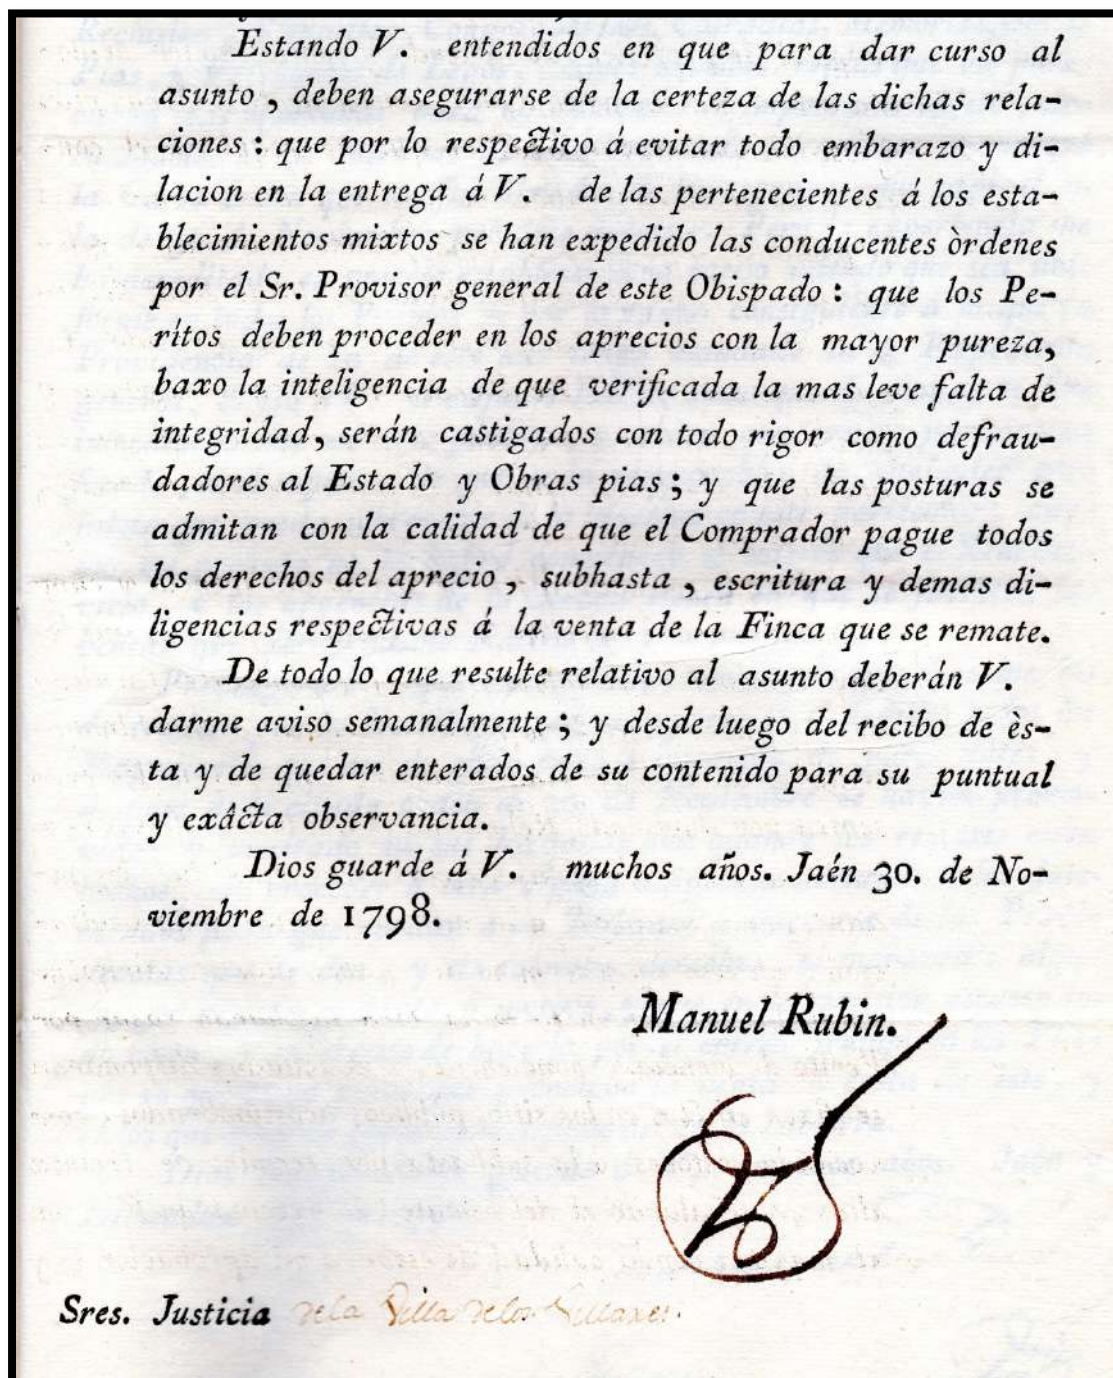 Estando V. entendidos en que para dar curso al
asunto , deben asegurarse de la certeza de las dichas rela-
ciones : que por lo respectivo á evitar todo embarazo y di-
lacion en la entrega á V. de las pertenecientes á los esta-
blecimientos mixtos se han expedido las conducentes òrdenes
por el Sr. Provisor general de este Obispado : que los Pe-
rítos deben proceder en los aprecios con la mayor pureza,
baxo la inteligencia de que verificada la mas leve falta de
integridad, serán castigados con todo rigor como defrau-
dadores al Estado y Obras pias ; y que las posturas se
admitan con la calidad de que el Comprador pague todos
los derechos del aprecio , subhasta , escritura y demas di-
ligencias respectivas á la venta de la Finca que se remate.
De todo lo que resulte relativo al asunto deberán V.
darme aviso semanalmente ; y desde luego del recibo de ès-
ta y de quedar enterados de su contenido para su puntual
y exâcta observancia.
Dios guarde á V. muchos años. Jaén 30. de No-
viembre de 1798.
Manuel Rubin.
Sres. Justicia de la Villa de los Villares.